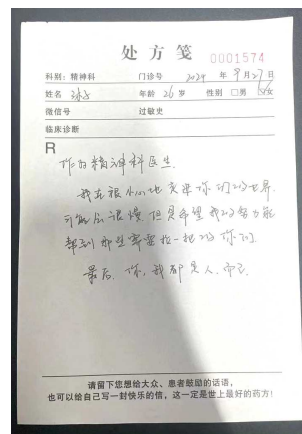 处方笺
0001574
科别：精神科 门诊号 2024 年 9月27日
姓名 年龄 26 岁 性别 □男 □女
微信号 过敏史
临床诊断
R
作为精神科医生
我在很小心地 你们的世界
可能会很慢 但是希望我的努力能
帮到那些需要拉一把的你们
最后，你，我都是人，而已.
请留下您想给大众、患者鼓励的话语，
也可以给自己写一封快乐的信，这一定是世上最好的药方！